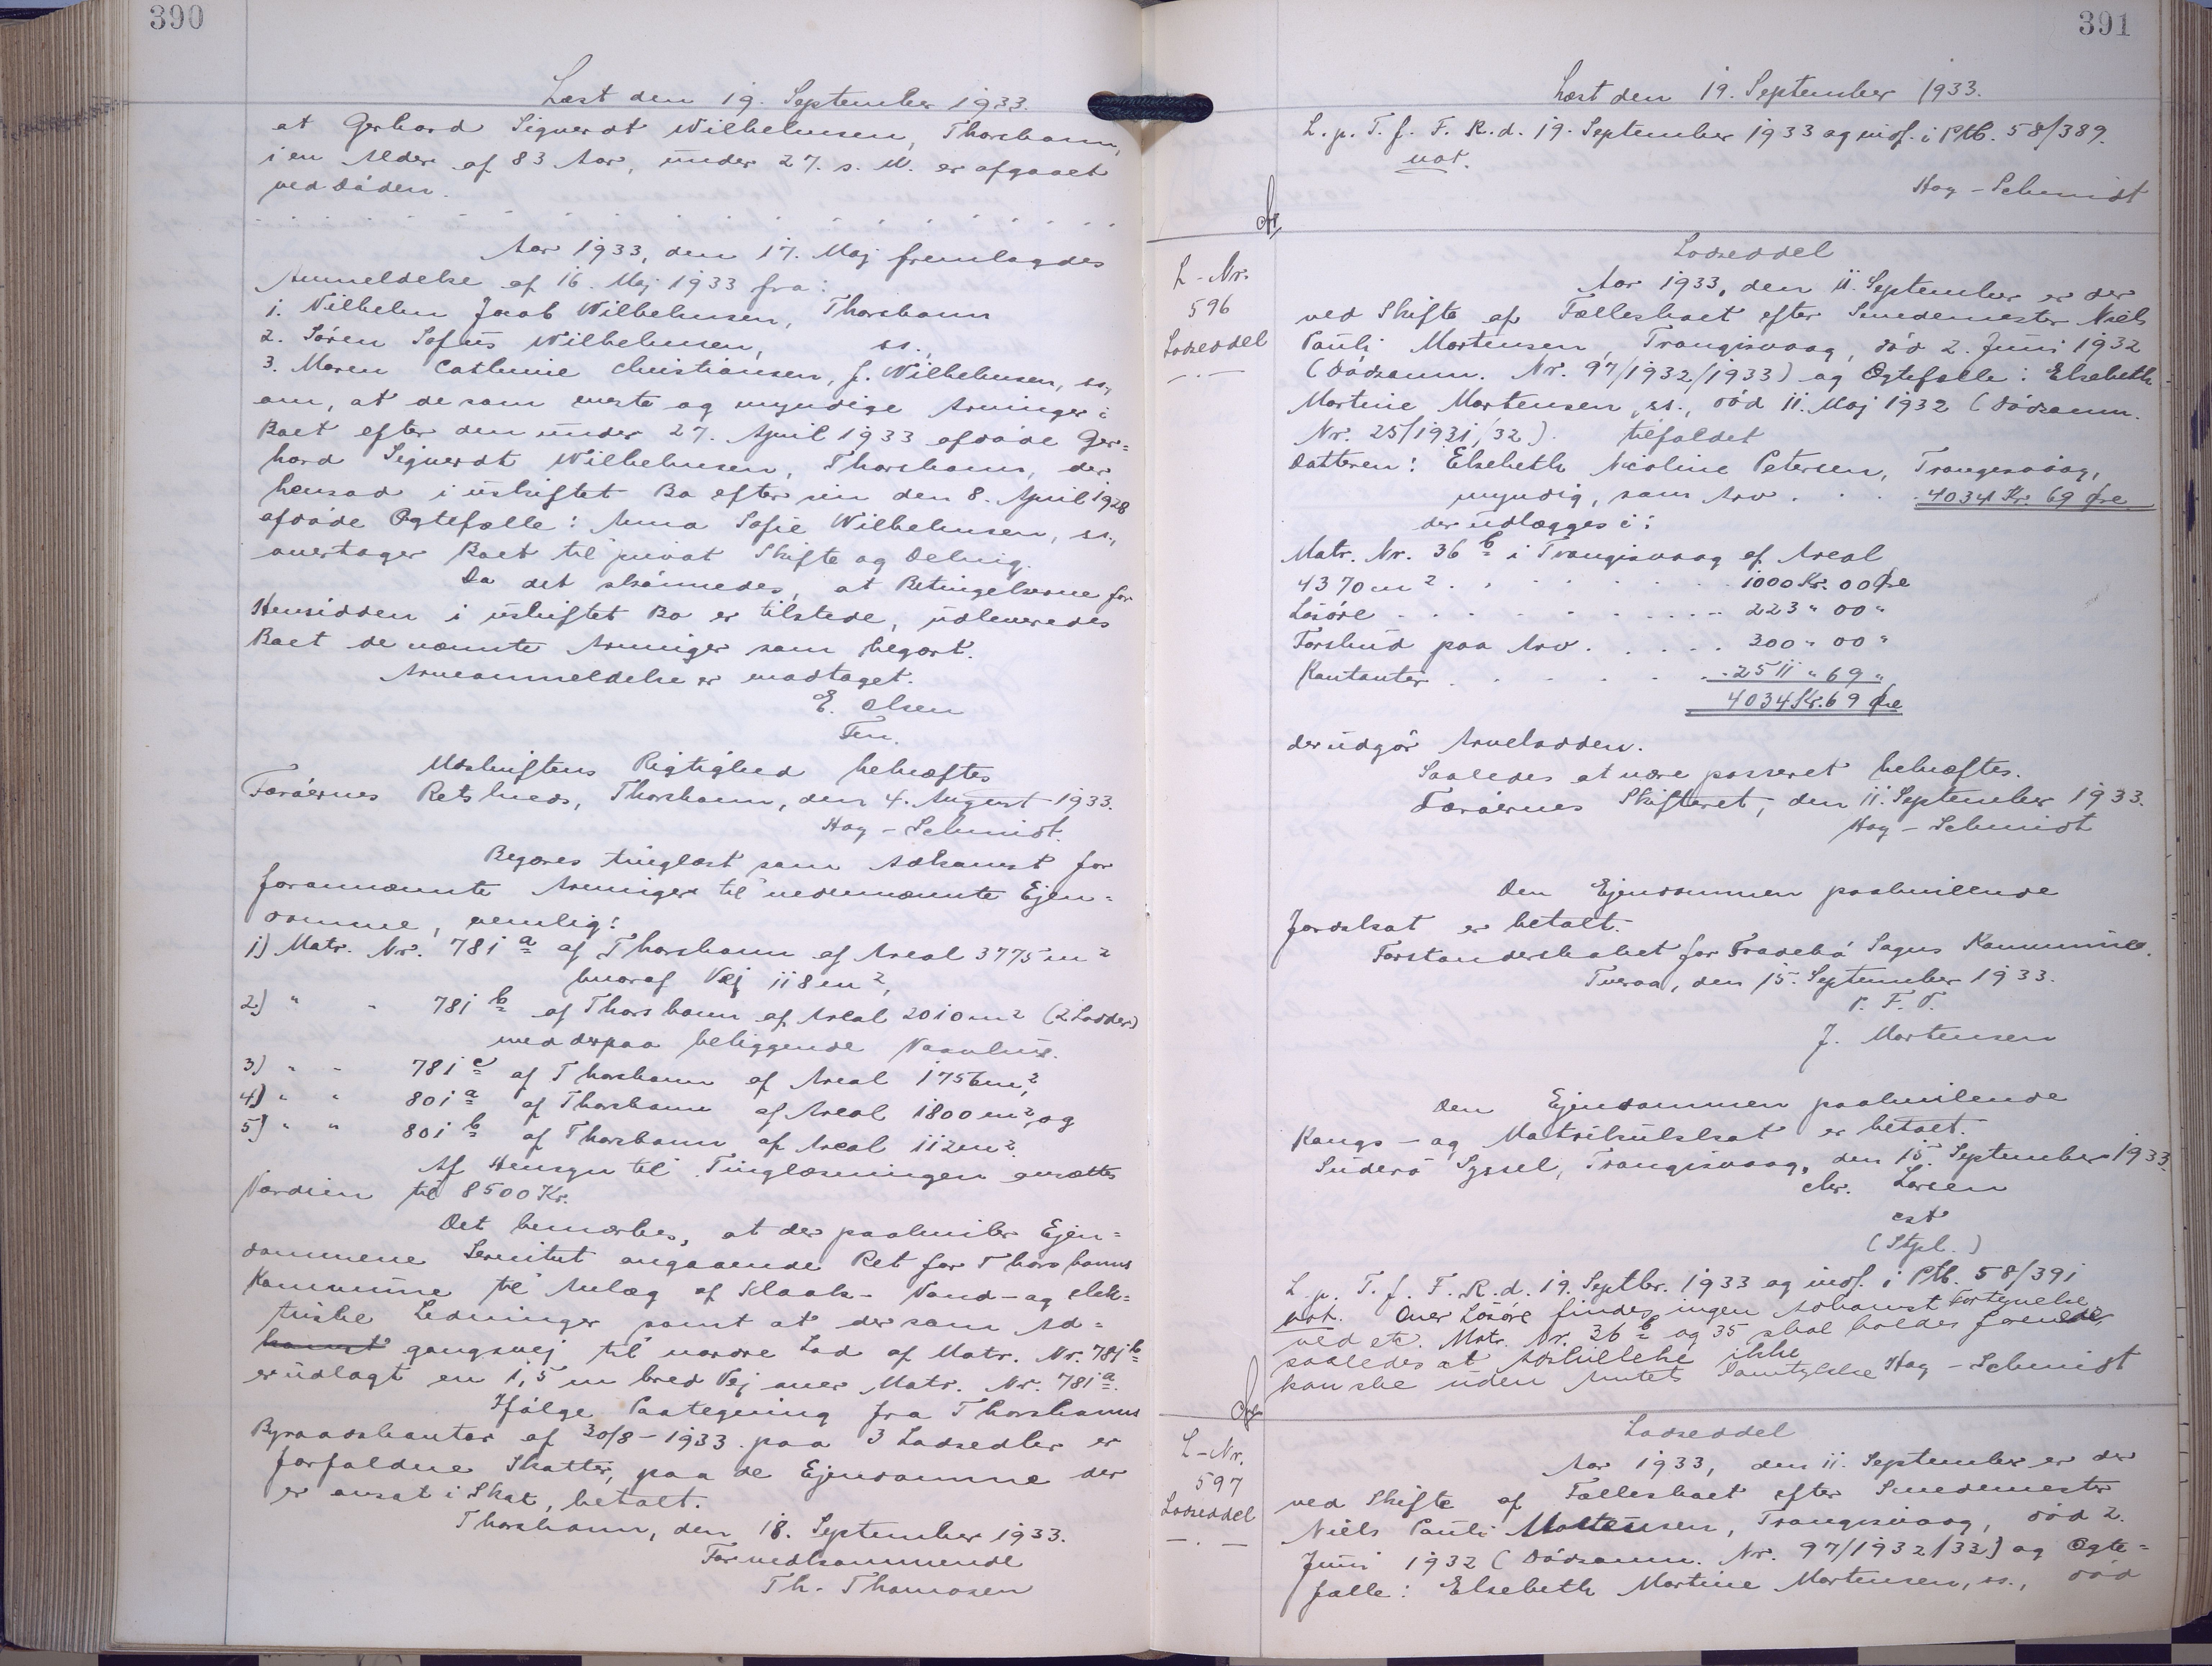 390
Læst den 19. September 1933.
at Gerhard Siguerdt Wilhelmsen, Thorshavn,
i en Alder af 83 Aar, under 27. s. M. er afgaaet
ved Døden.
Aar 1933, den 17. Maj fremlagdes
Anmeldelse af 16. Maj 1933 fra:
1. Vilhelm Jacob Wilhelmsen, Thorshavn
2. Søren Sofus Wilhelmsen, ss.,
3. Maren Cathrine Christiansen, f. Wilhelmsen, ss,
om, at de som eneste og myndige Arvinger i
Boet efter den under 27. April 1933 afdøde Ger=
hard Siguerdt Wilhelmsen, Thorshavn, der
hensad i uskiftet Bo efter sin den 8. April 1928
afdøde Ægtefælle: Anna Sofie Wilhelmsen, ss.,
overtager Boet til privat Skifte og Deling.
Da det skønnedes, at Betingelserne for
Hensidden i uskiftet Bo er tilstede, udleveredes
Boet de nævnte Arvinger som begært.
Arveanmeldelse er modtaget.
E. Olsen
Fm.
Udskriftens Rigtighed bekræftes
Færøernes Retskreds, Thorshavn, den 4. August 1933.
Høg-Schmidt.
Begæres tinglæst som Adkomst for
forannævnte Arvinger til nedennævnte Ejen=
domme, nemlig:
1) Matr. Nr. 781 a af Thorshavn af Areal 3775 m2
hvoraf Vej 118 m2,
2) " - 781 b af Thorshavn af Areal 2010 m2 (2 Lodder)
med derpaa beliggende Vaanhus.
3) " - 781 c af Thorshavn af Areal 1756 m2,
4) " " 801 a af Thorshavn af Areal 1800 m2, og
5) " " 801 b af Thorshavn af Areal 112 m2.
Af Hensyn til Tinglæsningen ansættes
Værdien til 8500 Kr.
Det bemærkes, at der paahviler Ejen=
dommene Servitut angaaende Ret for Thorshavns
Kommune til Anlæg af Kloak- Vand- og elek=
triske Ledninger samt at der som Ad=
komst gangsvej til nordre Lod af Matr. Nr. 781 b
er udlagt en 1,5 m bred Vej over Matr. Nr. 781 a.
Ifølge Paategning fra Thorshavns
Byraadskontor af 30/8-1933 paa 3 Lodsedler er
forfaldne Skatter, paa de Ejendomme der
er ansat i Skat, betalt.
Thorshavn, den 18. September 1933.
For vedkommende
Th. Thomasen
391
Læst den 19. September 1933.
L. p. T. f. F. R. d. 19. September 1933 og indf. i Ptb. 58/389.
not.
Høg-Schmidt
L-Nr.
596
Lodseddel
Lodseddel
Aar 1933, den 11. September er der
ved Skifte af Fællesboet efter Smedemester Niels
Pauli Mortensen, Trangisvaag, død 2. Juni 1932
(Dødsanm. Nr. 97/1932/1933) og Ægtefælle: Elsebeth
Martine Mortensen, ss., død 11. Maj 1932 (Dødsanm.
Nr. 25/1931/32). tilfaldet
Datteren: Elsebeth Nicoline Petersen, Trangisvaag,
myndig, som Arv . . . 4034 Kr. 69 Øre
der udlægges i:
Matr. Nr. 36 b i Trangisvaag af Areal
4370 m2 . . . 1000 Kr. 00 Øre
Løsøre . . . 223 " 00 "
Forskud paa Arv . . . 300 " 00 "
Kontanter . . . 2511 " 69 "
4034 Kr. 69 Øre
der udgør Arvelodden.
Saaledes at være passeret bekræftes.
Færøernes Skifteret, den 11. September 1933.
Høg-Schmidt
Den Ejendommen paahvilende
Jordskat er betalt.
Forstanderskabet for Frodebø Sogns Kommune.
Tveraa, den 15. September 1933.
P. F. V.
J. Mortensen
Den Ejendommen paahvilende
Kongs- og Matrikulskat er betalt.
Suderø Syssel, Trangisvaag, den 15. September 1933.
Chr. Larsen
cst
(Stpl.)
L. p. T. f. F. R. d. 19. Septbr. 1933 og indf. i Ptb. 58/391
not. Over Løsøre findes ingen Adkomst Fortegnelse
ved etc. Matr. Nr. 36 b og 35 skal holdes forenede
saaledes at Adskillelse ikke
kan ske uden Amtets Samtykke Høg-Schmidt
L-Nr.
597
Lodseddel
Lodseddel
Aar 1933, den 11. September er der
ved Skifte af Fællesboet efter Smedemester
Niels Pauli Mortensen, Trangisvaag, død 2.
Juni 1932 (Dødsanm. Nr. 97/1932/33) og Ægte=
fælle: Elsebeth Martine Mortensen, ss., død